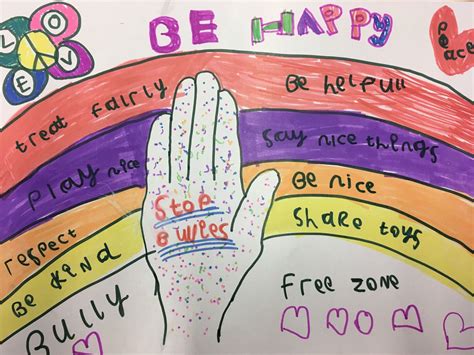 LOVE
BE HAPPY
Peace
treat fairly
Be helpull
play nice
say nice things
respect
Be nice
Be KiND
Share toys
Stop
Bullies
Bully
free zone